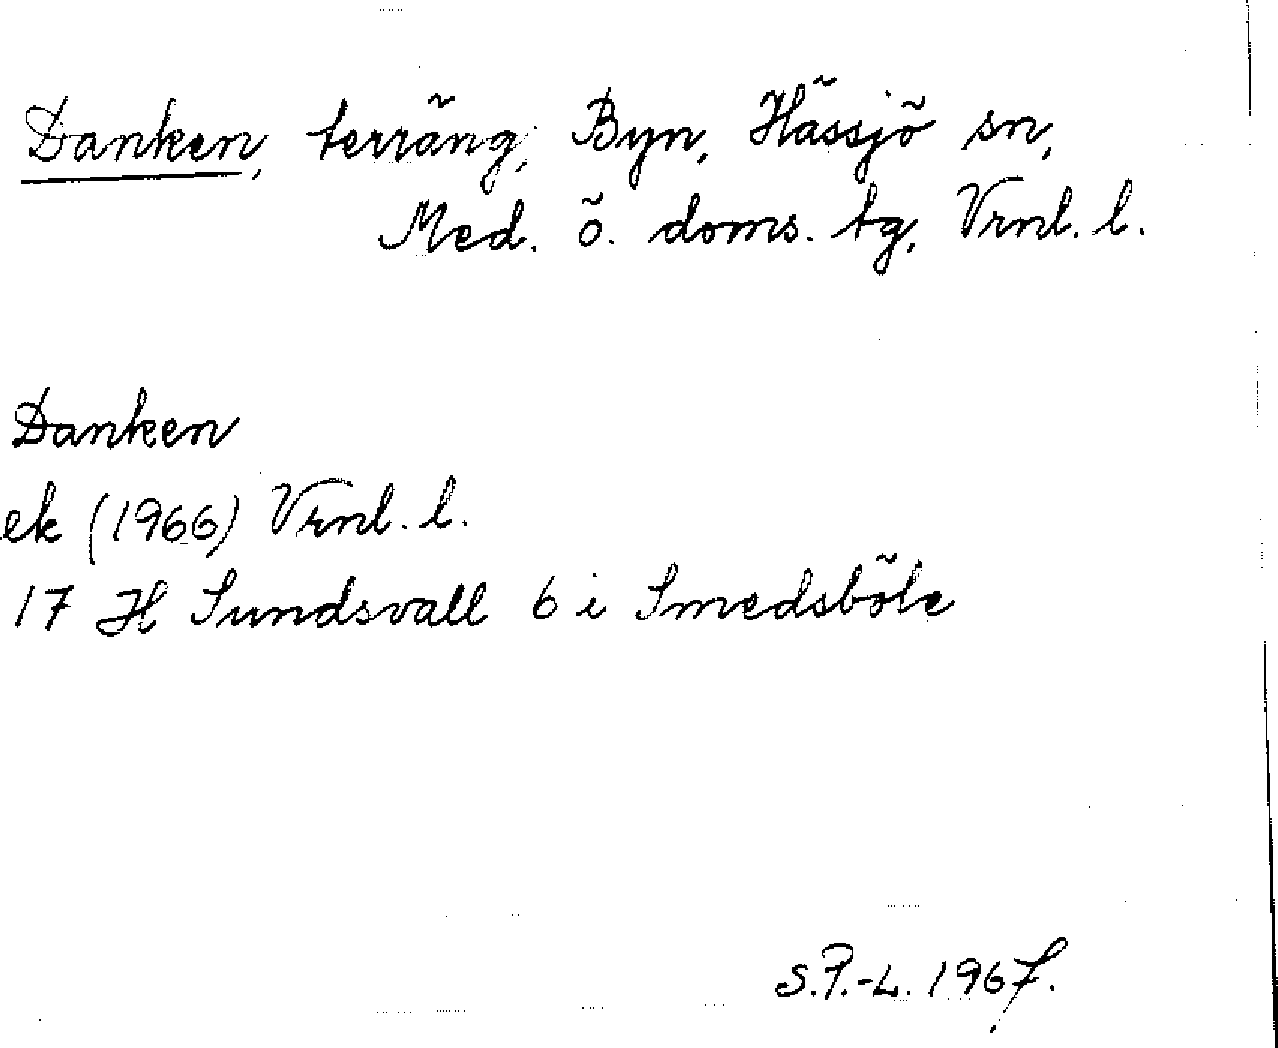 Danken, terräng, Byn, Hässjö sn,
Med. ö. doms. tg, Vrnl. l.
Danken
ek (1966) Vrnl. l.
17 H Sundsvall 6 i Smedsböle
S.P.-L. 1967.